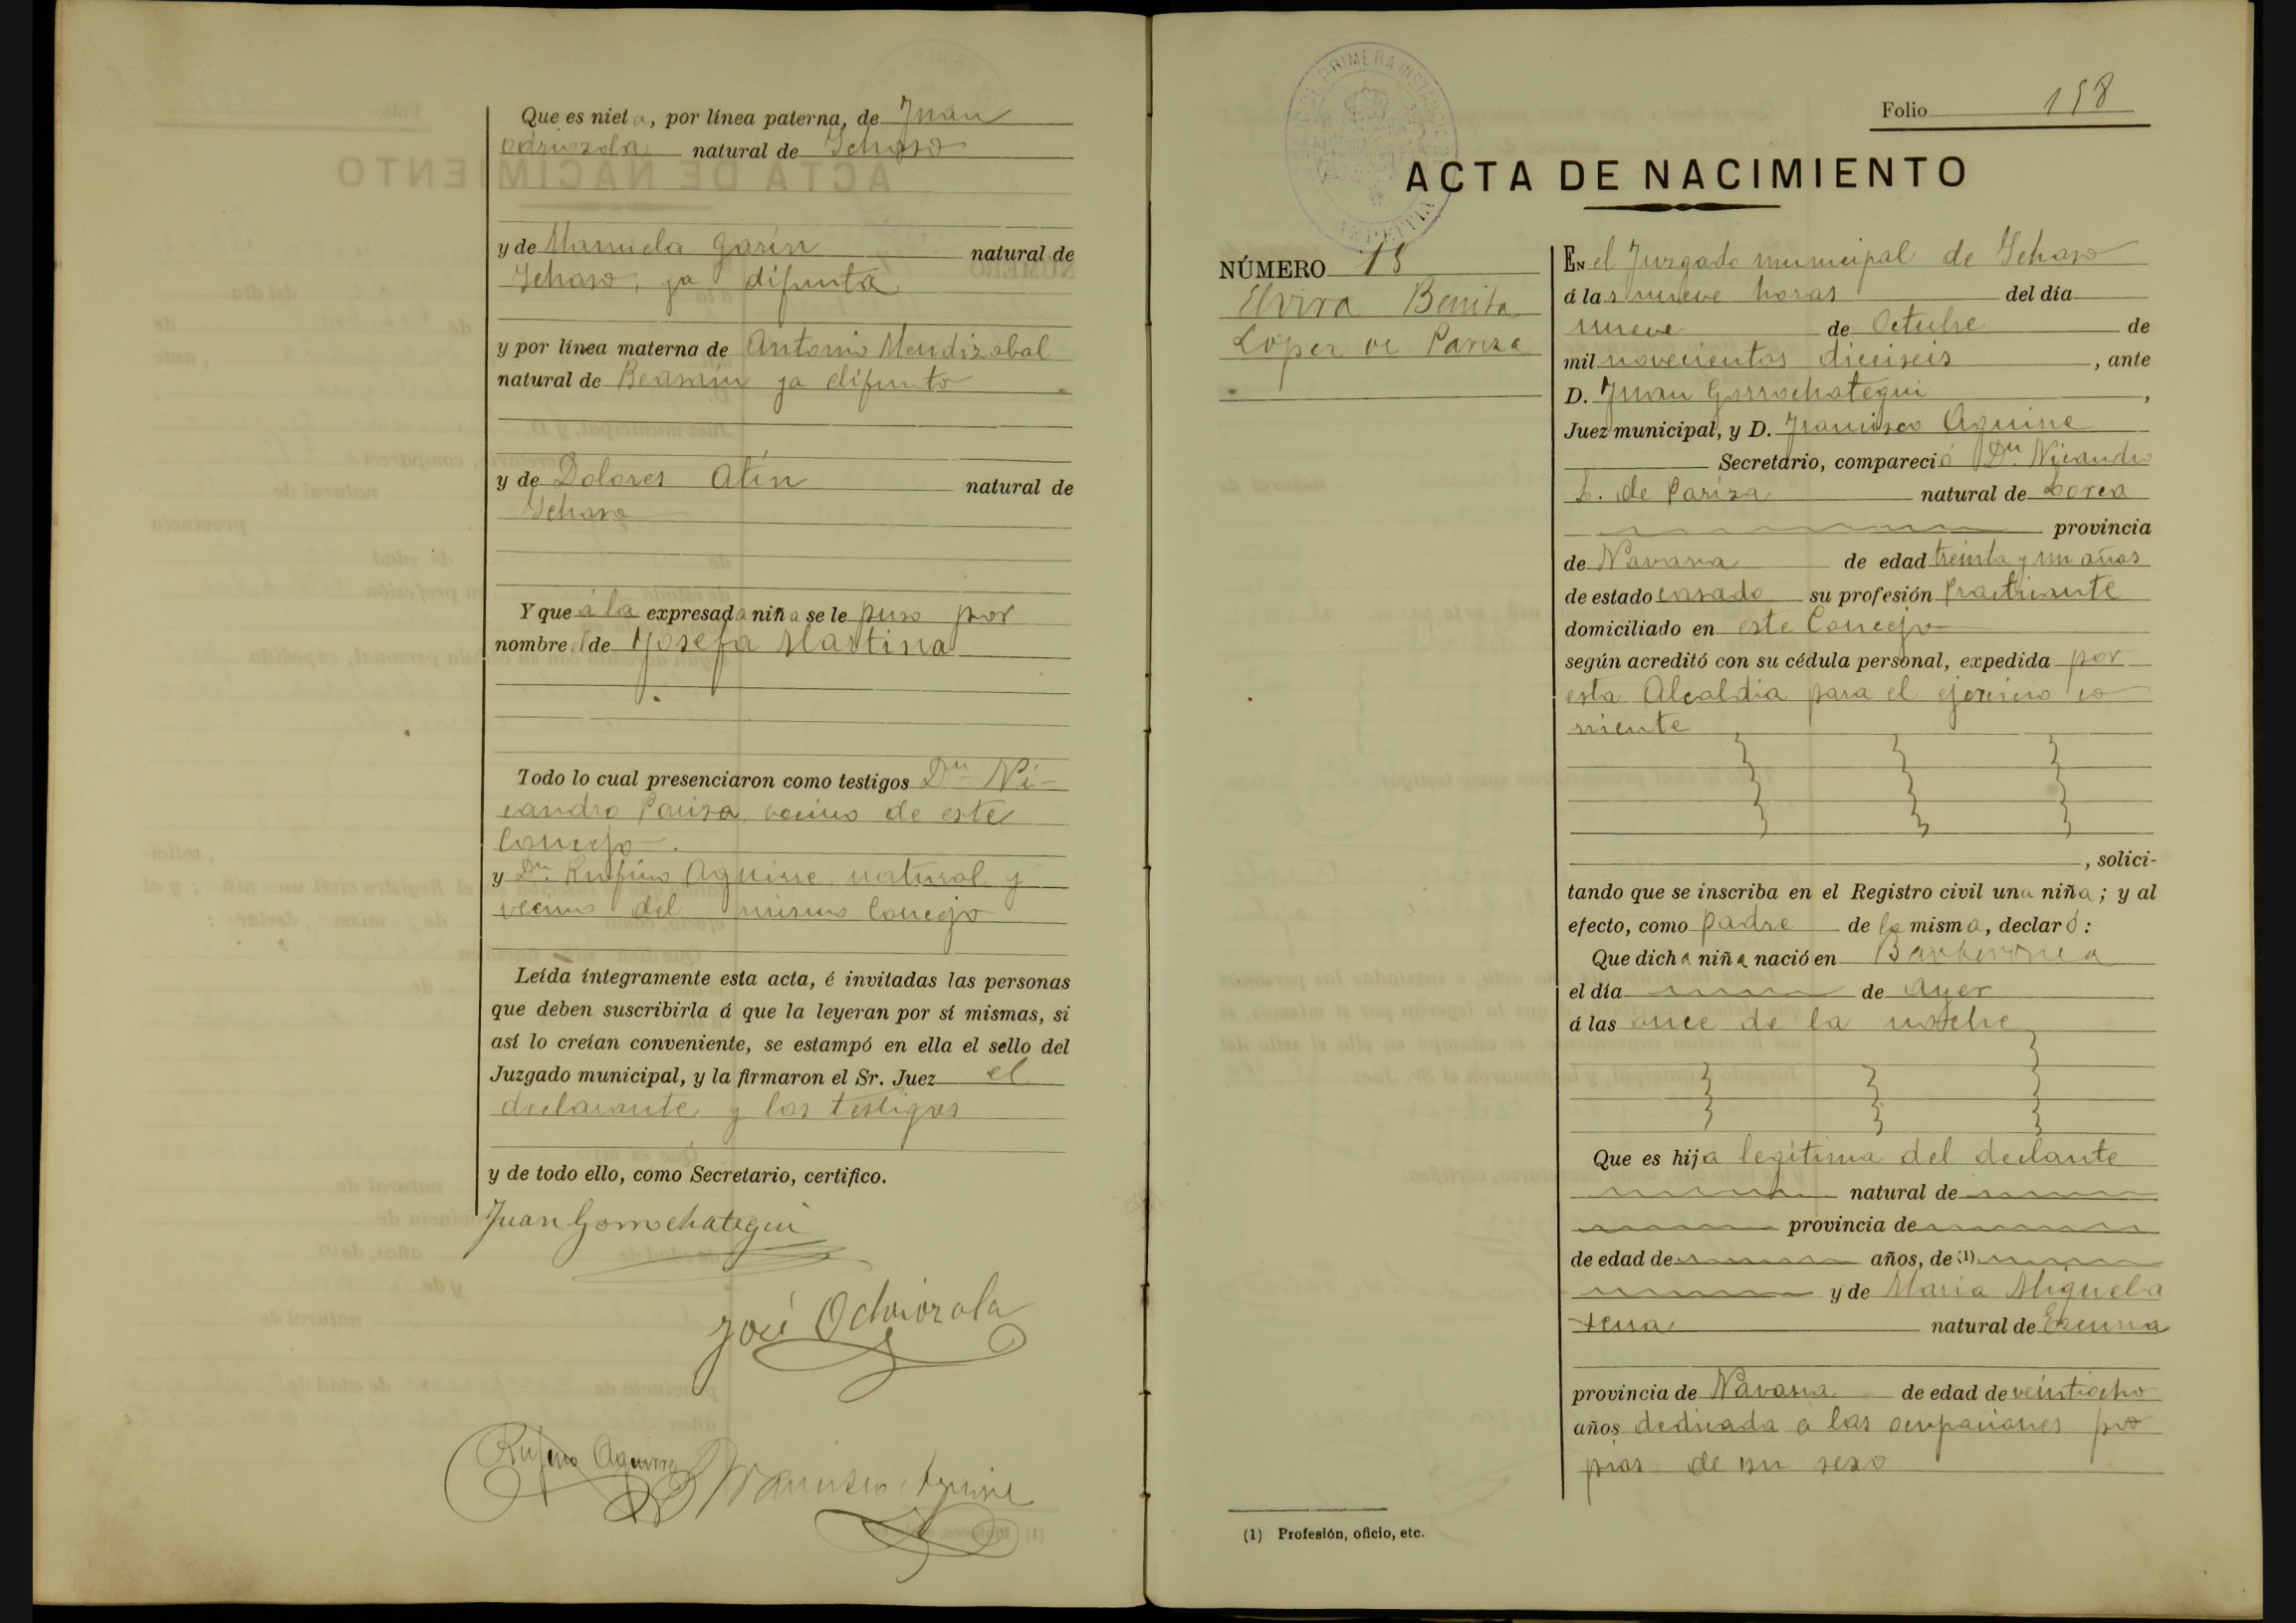 Que es nieta, por línea paterna, de Juan
Odriozola natural de Ichaso
y de Manuela Garín natural de
Ichaso, ya difunta
y por línea materna de Antonio Mendizabal
natural de Beasain ya difunto
y de Dolores Atín natural de
Ichaso
Y que á la expresada niña se le puso por
nombre el de Josefa Martina
Todo lo cual presenciaron como testigos Dn Ni-
candro Pariza vecino de este
Concejo.
y Dn. Rufino Aguirre natural y
vecino del mismo Concejo
Leída íntegramente esta acta, é invitadas las personas
que deben suscribirla á que la leyeran por sí mismas, si
así lo creían conveniente, se estampó en ella el sello del
Juzgado municipal, y la firmaron el Sr. Juez el
declarante y los testigos
y de todo ello, como Secretario, certifico.
Juan Gorrochategui
José Odriozola
Rufino Aguirre Francisco Aguirre
Folio 158
PRIMERA INSTANCIA
AZPEITIA
ACTA DE NACIMIENTO
NÚMERO 15
Elvira Benita
Lopez de Pariza
En el Juzgado municipal de Ichaso
á las nueve horas del día
nueve de Octubre de
mil novecientos dieciseis, ante
D. Juan Gorrochategui,
Juez municipal, y D. Francisco Aguirre
Secretario, compareció Dn Nicandro
L. de Pariza natural de Lorca
provincia
de Navarra de edad treinta y un años
de estado casado su profesión Practicante
domiciliado en este Concejo
según acreditó con su cédula personal, expedida por
esta Alcaldia para el ejercicio co
rriente
, solici-
tando que se inscriba en el Registro civil una niña; y al
efecto, como padre de la misma, declaró:
Que dicha niña nació en
el día de Ayer
á las once de la noche
Que es hija legítima del declante
natural de
provincia de
de edad de años, de (1)
y de Maria Miguela
natural de
provincia de Navarra de edad de veintiocho
años dedicada a las ocupaciones pro
pias de su sexo
(1) Profesión, oficio, etc.